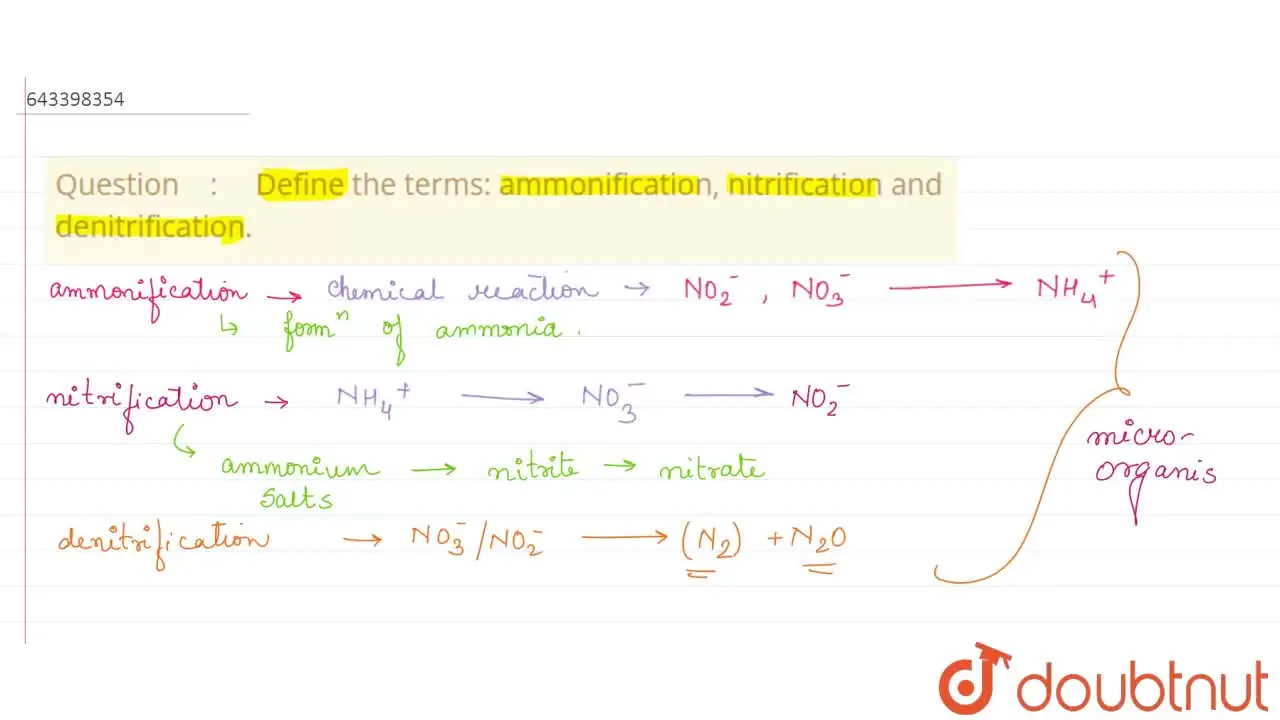 643398354
Question : Define the terms: ammonification, nitrification and
denitrification.
ammonification → chemical reaction → NO₂⁻ , NO₃⁻ ⟶ NH₄⁺
↳ formⁿ of ammonia.
nitrification → NH₄⁺ ⟶ NO₃⁻ ⟶ NO₂⁻
↳ ammonium → nitrite → nitrate
salts
micro-
organis
denitrification → NO₃⁻/NO₂⁻ ⟶ (N₂) + N₂O
doubtnut